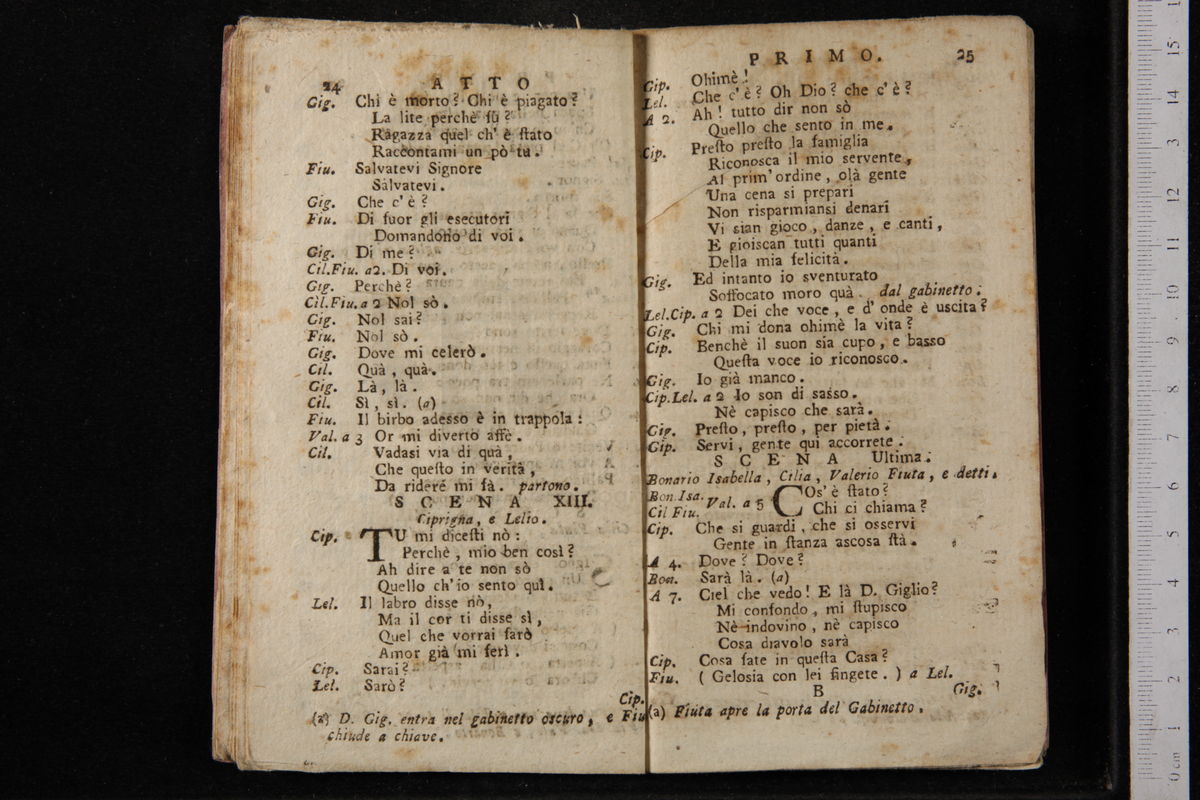 24 ATTO
Gig. Chi è morto? Chi è piagato?
La lite perchè fù?
Ragazza quel ch' è ſtato
Raccontami un pò tu.
Fiu. Salvatevi Signore
Salvatevi.
Gig. Che c' è?
Fiu. Di fuor gli esecutori
Domandono di voi.
Gig. Di me?
Cil. Fiu. a2. Di voi.
Gig. Perchè?
Cil. Fiu. a 2 Nol sò.
Gig. Nol sai?
Fiu. Nol sò.
Gig. Dove mi celerò.
Cil. Quà, quà.
Gig. Là, là.
Cil. Sì, sì. (a)
Fiu. Il birbo adesso è in trappola:
Val. a 3 Or mi diverto affè.
Cil. Vadasi via di quà,
Che queſto in verità,
Da ridere mi fà. partono.
SCENA XIII.
Ciprigna, e Lelio.
Cip. TU mi diceſti nò:
Perchè, mio ben così?
Ah dire a te non sò
Quello ch'io sento quì.
Lel. Il labro disse nò,
Ma il cor ti disse sì,
Quel che vorrai farò
Amor già mi ferì.
Cip. Sarai?
Lel. Sarò?
Cip.
(a) D. Gig. entra nel gabinetto oscuro, e Fiu
chiude a chiave.
PRIMO. 25
Cip. Ohimè!
Lel. Che c' è? Oh Dio? che c' è?
A 2. Ah! tutto dir non sò
Quello che sento in me.
Cip. Preſto preſto la famiglia
Riconosca il mio servente,
Al prim' ordine, olà gente
Una cena si prepari
Non risparmiansi denari
Vi sian gioco, danze, e canti,
E gioiscan tutti quanti
Della mia felicità.
Gig. Ed intanto io sventurato
Soffocato moro quà. dal gabinetto.
Lel. Cip. a 2 Dei che voce, e d' onde è uscita?
Gig. Chi mi dona ohimè la vita?
Cip. Benchè il suon sia cupo, e basso
Queſta voce io riconosco.
Gig. Io già manco.
Cip. Lel. a 2 Io son di sasso.
Nè capisco che sarà.
Gig. Preſto, preſto, per pietà.
Cip. Servi, gente qui accorrete.
SCENA Ultima.
Bonario Isabella, Cilia, Valerio Fiuta, e detti.
Bon. Isa. Cil Fiu. Val. a 5 COs' è ſtato?
Chi ci chiama?
Cip. Che si guardi, che si osservi
Gente in ſtanza ascosa ſtà.
A 4. Dove? Dove?
Bon. Sarà là. (a)
A 7. Ciel che vedo! E là D. Giglio?
Mi confondo, mi ſtupisco
Nè indovino, nè capisco
Cosa diavolo sarà
Cip. Cosa fate in queſta Casa?
Fiu. (Gelosia con lei fingete.) a Lel.
B Gig.
(a) Fiuta apre la porta del Gabinetto.